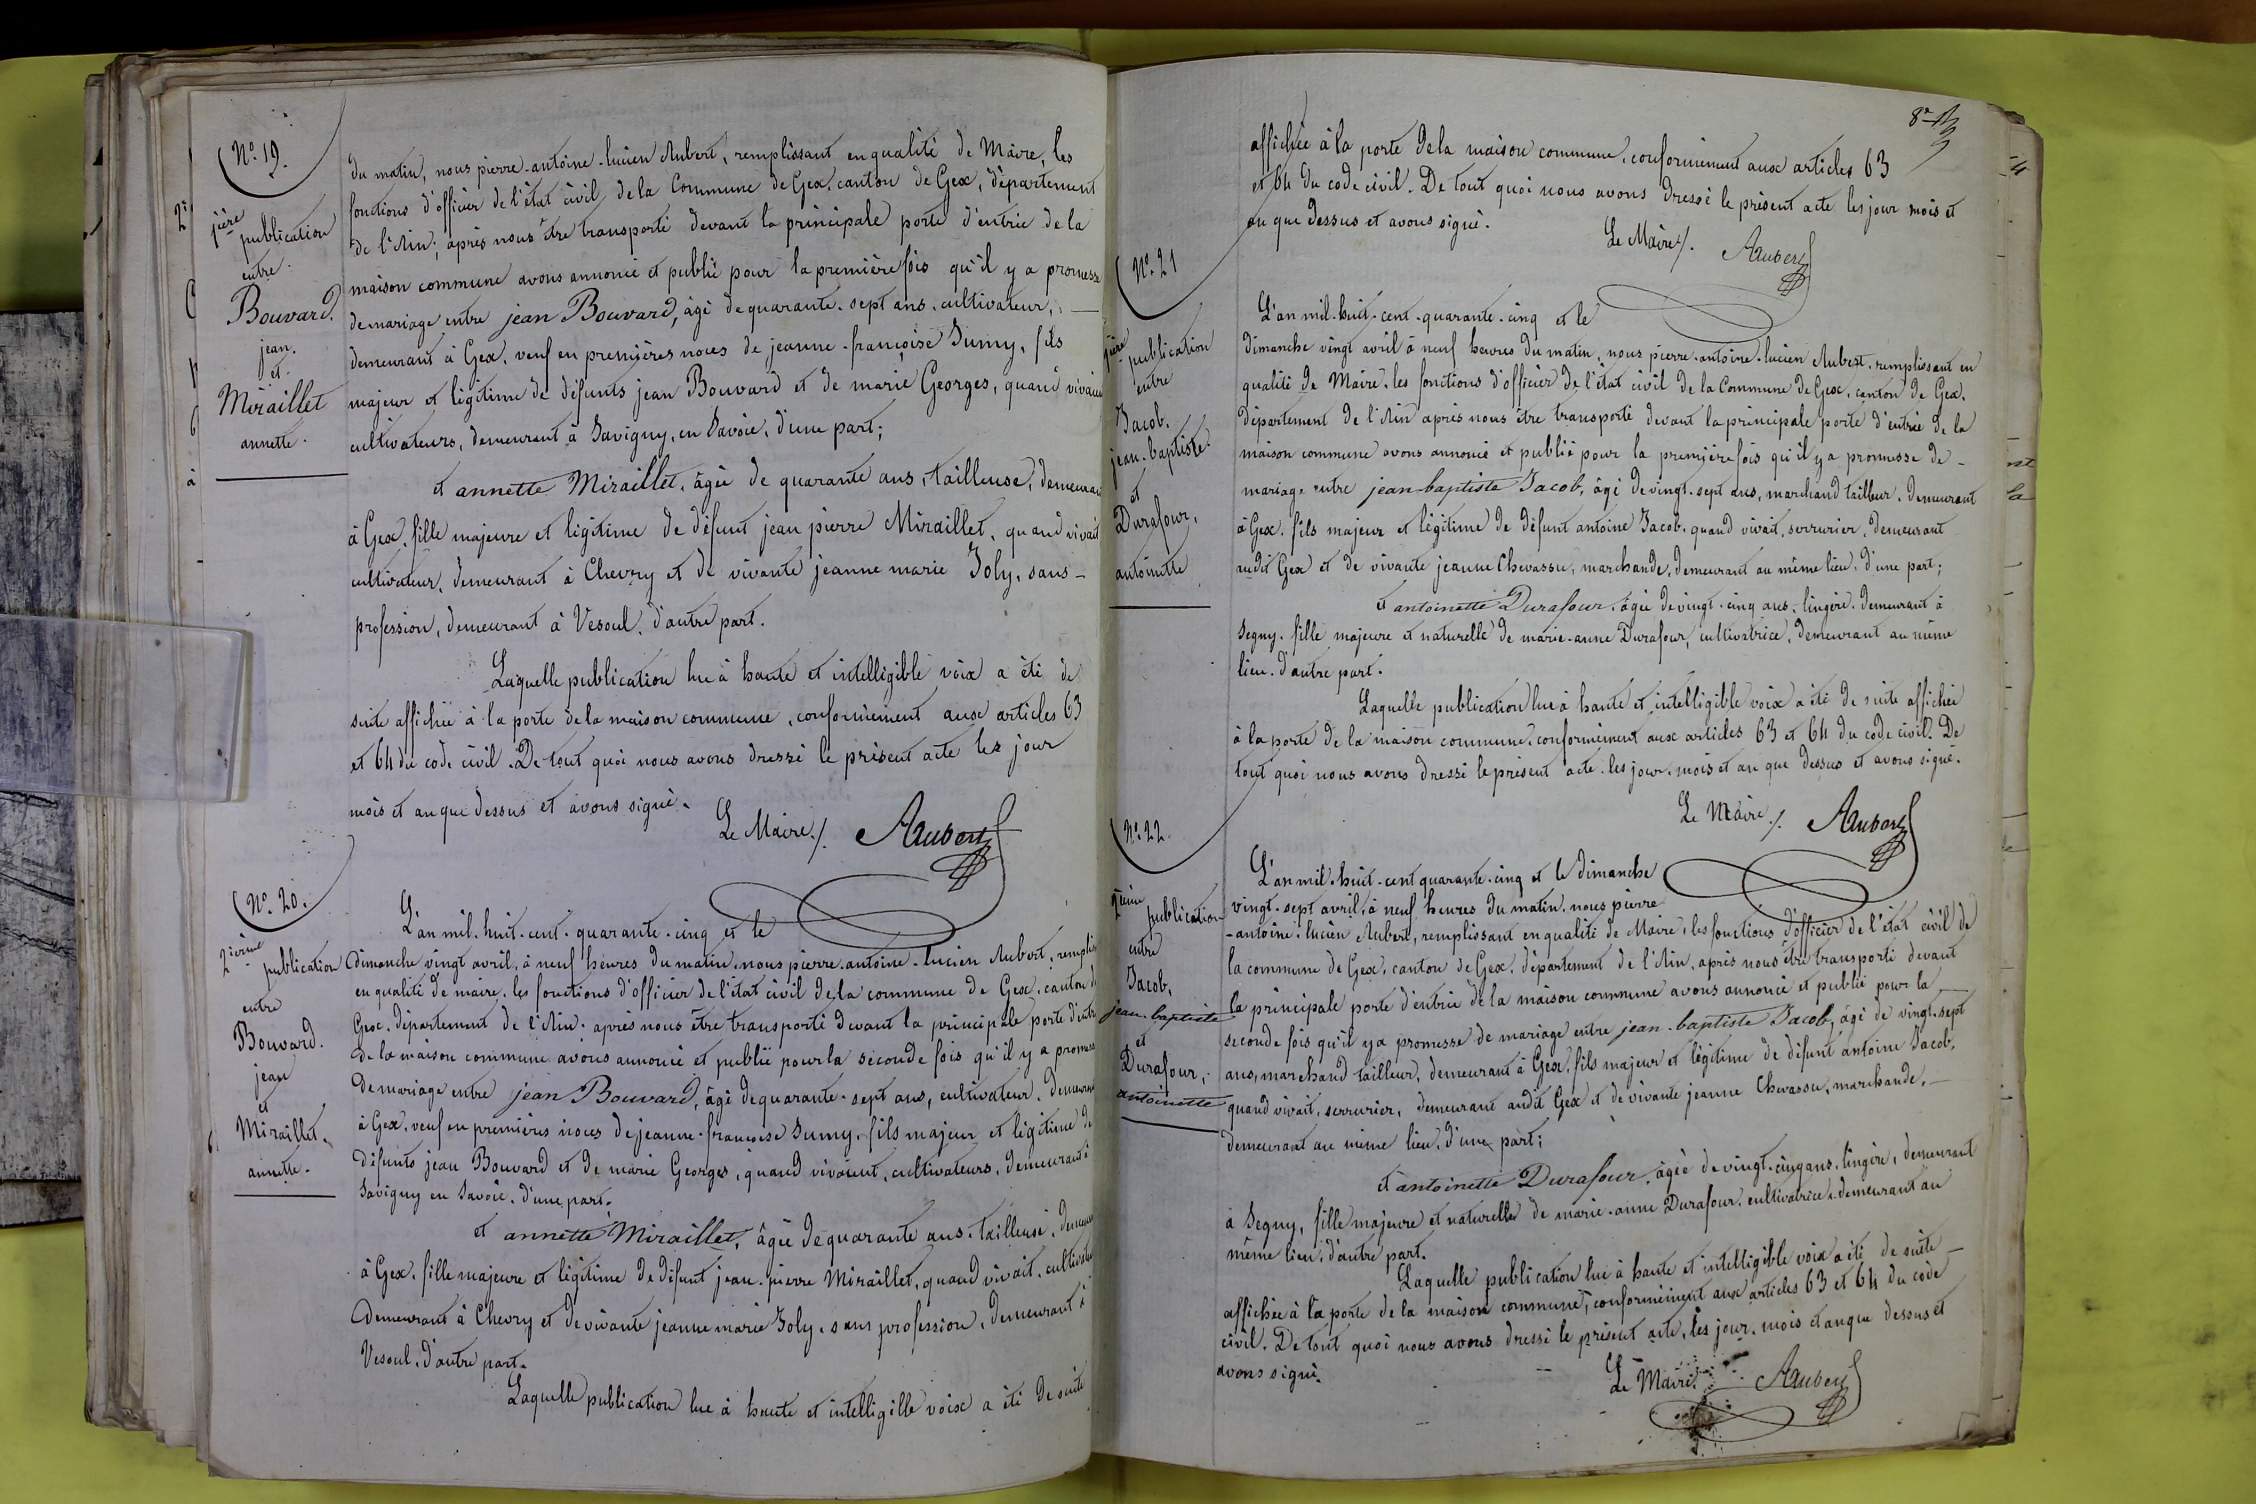 No. 19.
1ière publication
entre
Bouvard.
jean.
et
Miraillet
annette.
du matin, nous pierre-antoine-lucien Aubert, remplissant en qualité de Maire, les
fonctions d'officier de l'état civil de la Commune de Gex, canton de Gex, département
de l'Ain; après nous être transporté devant la principale porte d'entrée de la
maison commune avons annoncé et publié pour la première fois qu'il y a promesse
de mariage entre jean Bouvard, âgé de quarante-sept ans, cultivateur,
demeurant à Gex, veuf en premières noces de jeanne-françoise Sumy, fils
majeur et légitime de défunts jean Bouvard et de marie Georges, quand vivaient
cultivateurs, demeurant à Savigny, en Savoie, d'une part;
et annette Miraillet, âgée de quarante ans, tailleuse, demeurant
à Gex, fille majeure et légitime de défunt jean pierre Miraillet, quand vivait
cultivateur, demeurant à Chevry et de vivante jeanne marie Joly, sans-
profession, demeurant à Vesoul, d'autre part.
Laquelle publication lue à haute et intelligible voix a été de
suite affichée à la porte de la maison commune, conformément aux articles 63
et 64 du code civil. De tout quoi nous avons dressé le présent acte les jour
mois et an que dessus et avons signé.
Le Maire /. Aubert
No. 20.
2ième publication
entre
Bouvard.
jean
et
Miraillet,
annette.
L'an mil-huit-cent-quarante-cinq et le
dimanche vingt avril, à neuf heures du matin, nous pierre-antoine-lucien Aubert, rempliss
en qualité de maire, les fonctions d'officier de l'état civil de la commune de Gex, canton de
Gex, département de l'Ain, après nous être transporté devant la principale porte d'entrée
de la maison commune avons annoncé et publié pour la seconde fois qu'il y a promesse
de mariage entre jean Bouvard, âgé de quarante-sept ans, cultivateur, demeurant
à Gex, veuf en premières noces de jeanne-françoise Sumy, fils majeur et légitime de
défunts jean Bouvard et de marie Georges, quand vivaient, cultivateurs, demeurant à
Savigny en Savoie, d'une part;
et annette Miraillet, âgée de quarante ans, tailleuse, demeurant
à Gex, fille majeure et légitime de défunt jean-pierre Miraillet, quand vivait, cultivateur
demeurant à Chevry et de vivante jeanne marie Joly, sans profession, demeurant à
Vesoul, d'autre part.
Laquelle publication lue à haute et intelligible voix a été de suite
8e
affichée à la porte de la maison commune, conformément aux articles 63
et 64 du code civil. De tout quoi nous avons dressé le présent acte les jour mois et
an que dessus et avons signé.
Le Maire /. Aubert
No. 21
1ière publication
entre
Jacob.
jean-baptiste
et
Durafour,
antoinette
L'an mil-huit-cent-quarante-cinq et le
dimanche vingt avril à neuf heures du matin, nous pierre-antoine-lucien Aubert, remplissant en
qualité de Maire, les fonctions d'officier de l'état civil de la Commune de Gex, canton de Gex,
département de l'Ain après nous être transporté devant la principale porte d'entrée de la
maison commune avons annoncé et publié pour la première fois qu'il y a promesse de -
mariage entre jean-baptiste Jacob, âgé de vingt-sept ans, marchand tailleur, demeurant
à Gex, fils majeur et légitime de défunt antoine Jacob, quand vivait, serrurier, demeurant
audit Gex et de vivante jeanne Chevassu, marchande, demeurant au même lieu, d'une part;
et antoinette Durafour, âgée de vingt-cinq ans, lingère, demeurant à
Segny, fille majeure et naturelle de marie-anne Durafour, cultivatrice, demeurant au même
lieu, d'autre part.
Laquelle publication lue à haute et intelligible voix a été de suite affichée
à la porte de la maison commune, conformément aux articles 63 et 64 du code civil. De
tout quoi nous avons dressé le présent acte les jour, mois et an que dessus et avons signé.
Le Maire /. Aubert
No. 22.
2ième publication
entre
Jacob,
jean-baptiste
et
Durafour,
antoinette
L'an mil-huit-cent quarante-cinq et le dimanche
vingt-sept avril, à neuf heures du matin, nous pierre
-antoine-lucien Aubert, remplissant en qualité de Maire, les fonctions d'officier de l'état civil de
la commune de Gex, canton de Gex, département de l'Ain, après nous être transporté devant
la principale porte d'entrée de la maison commune avons annoncé et publié pour la
seconde fois qu'il y a promesse de mariage entre jean-baptiste Jacob, âgé de vingt-sept
ans, marchand tailleur, demeurant à Gex, fils majeur et légitime de défunt antoine Jacob,
quand vivait, serrurier, demeurant audit Gex et de vivante jeanne Chevassu, marchande,
demeurant au même lieu, d'une part;
et antoinette Durafour, âgée de vingt-cinq ans, lingère, demeurant
à Segny, fille majeure et naturelle de marie-anne Durafour, cultivatrice, demeurant au
même lieu, d'autre part.
Laquelle publication lue à haute et intelligible voix a été de suite
affichée à la porte de la maison commune, conformément aux articles 63 et 64 du code
civil. De tout quoi nous avons dressé le présent acte, les jour, mois et an que dessus et
avons signé.
Le Maire. Aubert